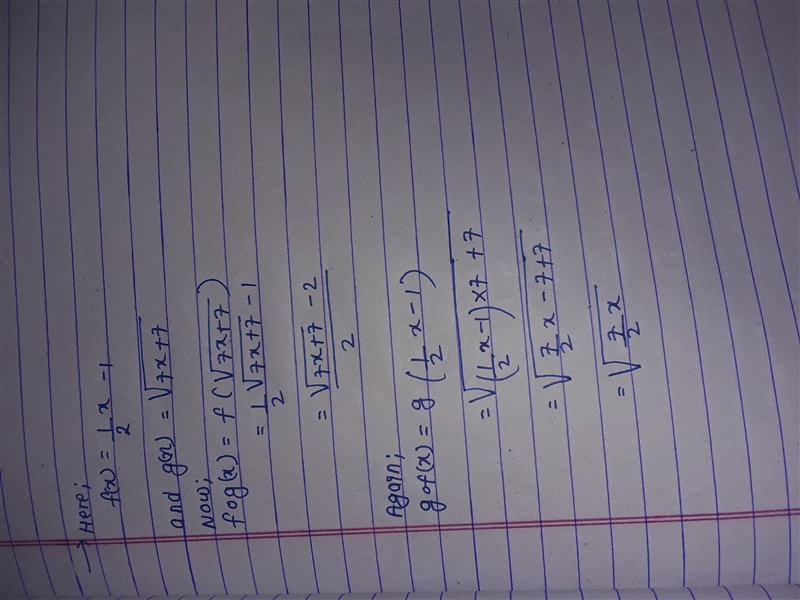 → Here;
f(x) = 1/2 x - 1
and g(x) = √(7x+7)
Now;
fog(x) = f(√(7x+7))
= 1/2 √(7x+7) - 1
= (√(7x+7) - 2)/2
Again;
gof(x) = g(1/2 x - 1)
= √((1/2 x - 1)×7 + 7)
= √(7/2 x - 7+7)
= √(7/2 x)